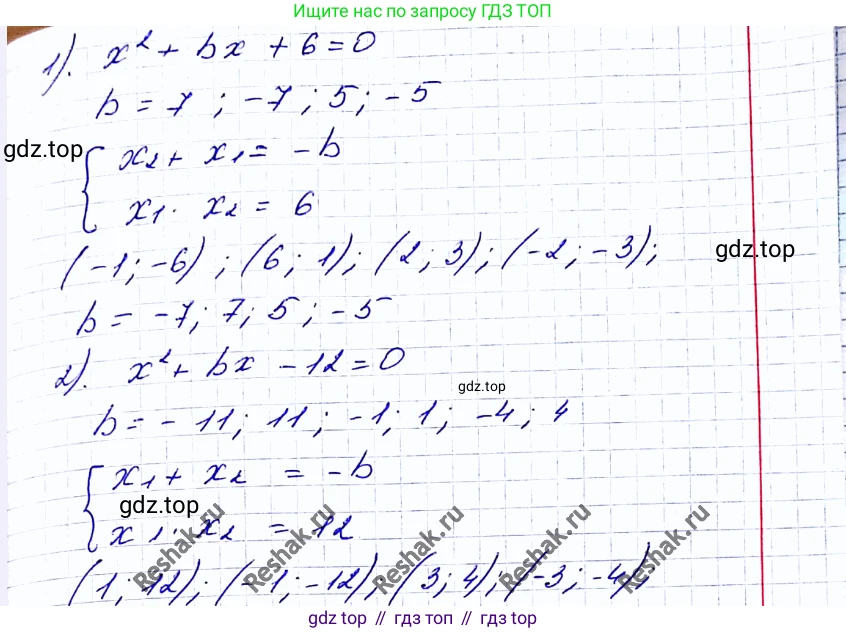 Ищите нас по запросу ГДЗ ТОП
1). x² + bx + 6 = 0
b = 7 ; -7 ; 5 ; -5
gdz.top
{ x₂ + x₁ = -b
x₁ · x₂ = 6
(-1; -6) ; (6 ; 1) ; (2 ; 3) ; (-2 ; -3) ;
gdz.top
b = -7 ; 7 ; 5 ; -5
2). x² + bx - 12 = 0
gdz.top
b = - 11 ; 11 ; -1 ; 1 ; -4 ; 4
{ x₁ + x₂ = -b
gdz.top
x₁ · x₂ = 12
Reshak.ru Reshak.ru Reshak.ru Reshak.ru Reshak.ru
(1 ; 12) ; (-1 ; -12) ; (3 ; 4) ; (-3 ; -4) ;
gdz top // gdz top // gdz.top